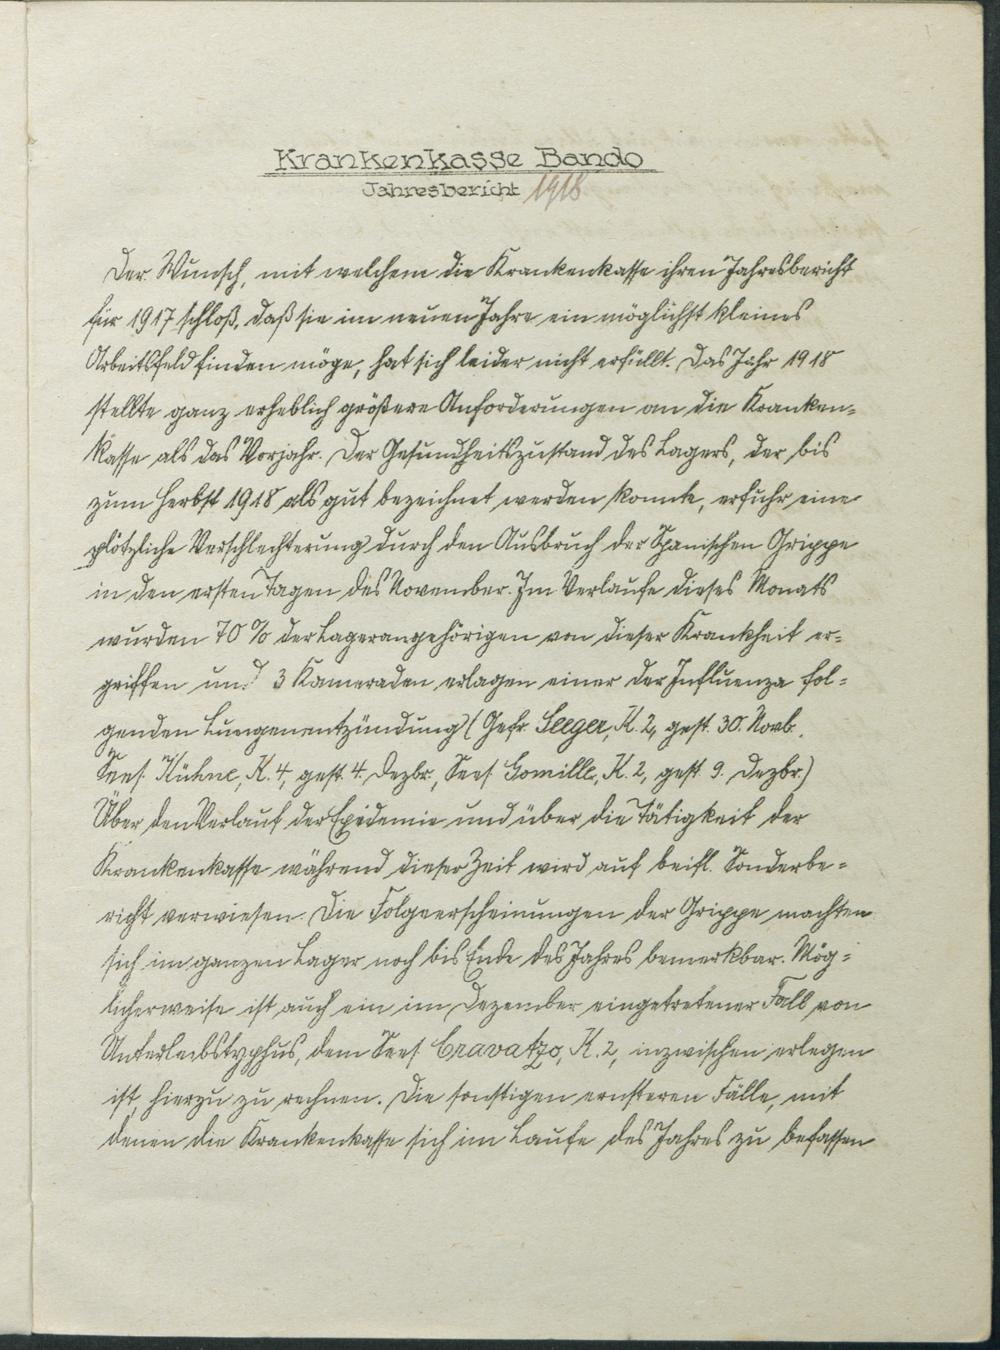 Krankenkasse Bando
Jahresbericht 1918
Der Wunsch, mit welchem die Krankenkasse ihren Jahresbericht
für 1917 schloß, daß sie im neuen Jahre ein möglichst kleines
Arbeitsfeld finden möge, hat sich leider nicht erfüllt. Das Jahr 1918
stellte ganz erheblich größere Anforderungen an die Kranken-
kasse als das Vorjahr. Der Gesundheitszustand des Lagers, der bis
zum Herbst 1918 als gut bezeichnet werden konnte, erfuhr eine
plötzliche Verschlechterung durch den Ausbruch der Spanischen Grippe
in den ersten Tagen des November. Im Verlaufe dieses Monats
wurden 70% der Lagerangehörigen von dieser Krankheit er-
griffen und 3 Kameraden erlagen einer der Influenza fol-
genden Lungenentzündung (Gefr. Seeger, K. 2, gest. 30. Novb.,
Sees. Kühne, K. 4, gest. 4. Dezbr., Sees. Gomille, K. 2, gest. 9. Dezbr.)
Über den Verlauf der Epidemie und über die Tätigkeit der
Krankenkasse während dieser Zeit wird auf beifl. Sonderbe-
richt verwiesen. Die Folgeerscheinungen der Grippe machten
sich im ganzen Lager noch bis Ende des Jahres bemerkbar. Mög-
licherweise ist auch ein im Dezember eingetretener Fall von
Unterleibstyphus, dem Sees. Cravatzo, K. 2, inzwischen erlegen
ist, hierzu zu rechnen. Die sonstigen ernsteren Fälle, mit
denen die Krankenkasse sich im Laufe des Jahres zu befassen